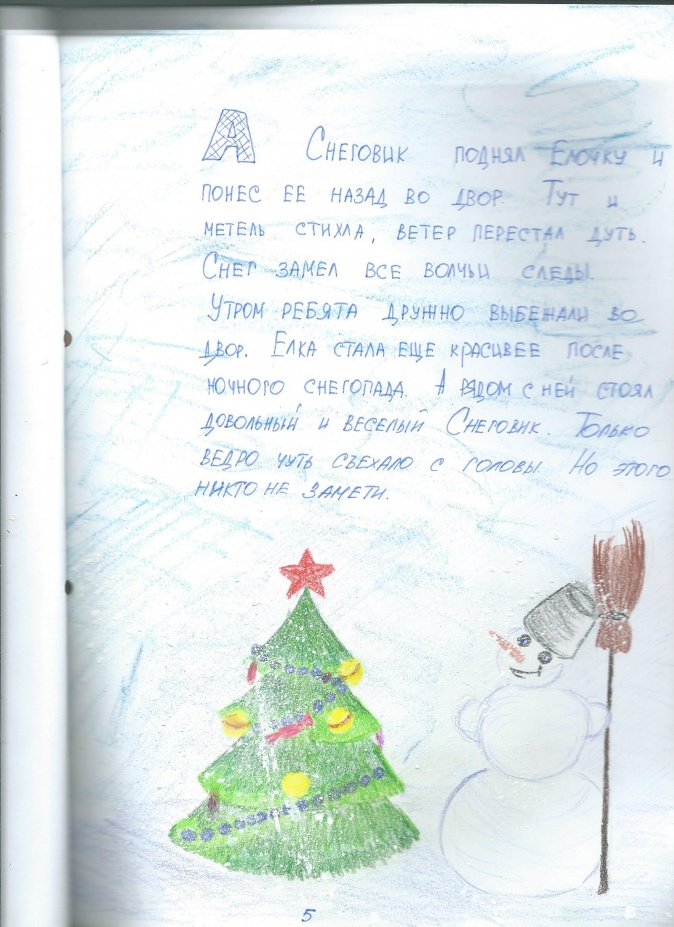 А Снеговик поднял Елочку и
понес ее назад во двор. Тут и
метель стихла, ветер перестал дуть.
Снег замел все волчьи следы.
Утром ребята дружно выбежали во
двор. Елка стала еще красивее после
ночного снегопада. А рядом с ней стоял
довольный и веселый Снеговик. Только
ведро чуть съехало с головы. Но этого
никто не замети.
5